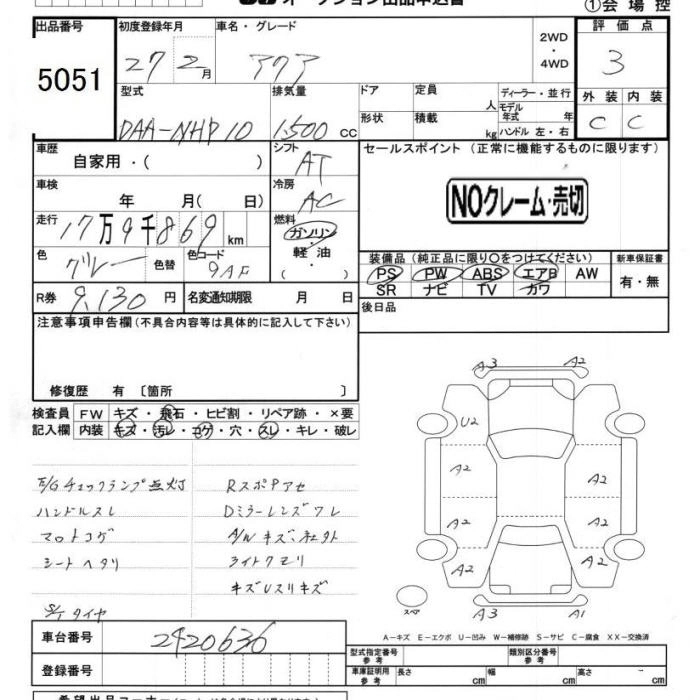 オークション出品申込書
①会場控
出品番号 初度登録年月 車名・グレード 2WD・4WD 評価点
5051 27 2月 アクア 3
型式 排気量 ドア 定員 人 ディーラー・並行 外装 内装
DAA-NHP10 1,500 cc 形状 積載 kg モデル年式 年 ハンドル 左・右 C C
車歴 自家用・( ) シフト AT セールスポイント (正常に機能するものに限ります)
車検 年 月( 日) 冷房 AC NOクレーム・売切
走行 17万9千869km 燃料 ガソリン・軽油・( )
色 グレー 色替 色コード 9AF 装備品(純正品に限り○をつけてください) 新車保証書
PS PW ABS エアB AW 有・無
R券 9,130円 名変通知期限 月 日 SR ナビ TV カワ
注意事項申告欄(不具合内容等は具体的に記入して下さい) 後日品
修復歴 有 〔箇所 〕
検査員 FW キズ・飛石・ヒビ割・リペア跡・×要
記入欄 内装 キズ・汚レ・コゲ・穴・スレ・キレ・破レ
E/Gチェックランプ点灯 Rスポアセ
ハンドルスレ Dミラーレンズワレ
マロトコゲ A/Wキズ、社外
シートヘタリ ライトクモリ
キズUスリキズ
S/Tタイヤ
A3 A2
U2
A2 A2
A2 A2
A2 A2
スペア A3 A1
A-キズ E-エクボ U-凹み W-補修跡 S-サビ C-腐食 XX-交換済
車台番号 2420636
型式指定番号 参考 類別区分番号 参考
登録番号 車庫証明用 参考 長さ cm 幅 cm 高さ cm